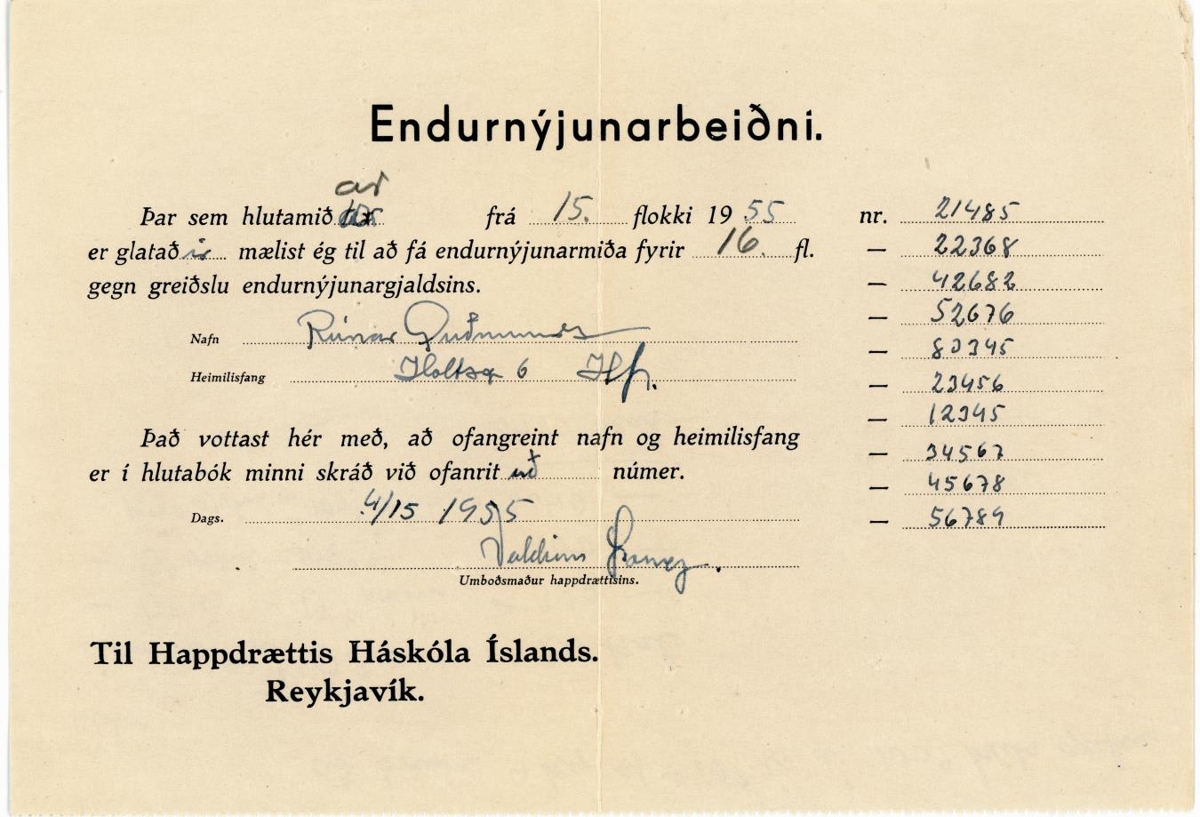 Endurnýjunarbeiðni.
ar
Þar sem hlutamið frá 15. flokki 1955 nr. 21485
er glatað ir mælist ég til að fá endurnýjunarmiða fyrir 16. fl. — 22368
gegn greiðslu endurnýjunargjaldsins. — 42682
— 52676
Nafn Rúnar Guðmunds
— 80345
Heimilisfang Holtsg 6 Hfj.
— 23456
— 12345
Það vottast hér með, að ofangreint nafn og heimilisfang
— 34567
er í hlutabók minni skráð við ofanrit uð númer.
— 45678
Dags. 4/15 1955 — 56789
Valdim
Umboðsmaður happdrættisins.
Til Happdrættis Háskóla Íslands.
Reykjavík.